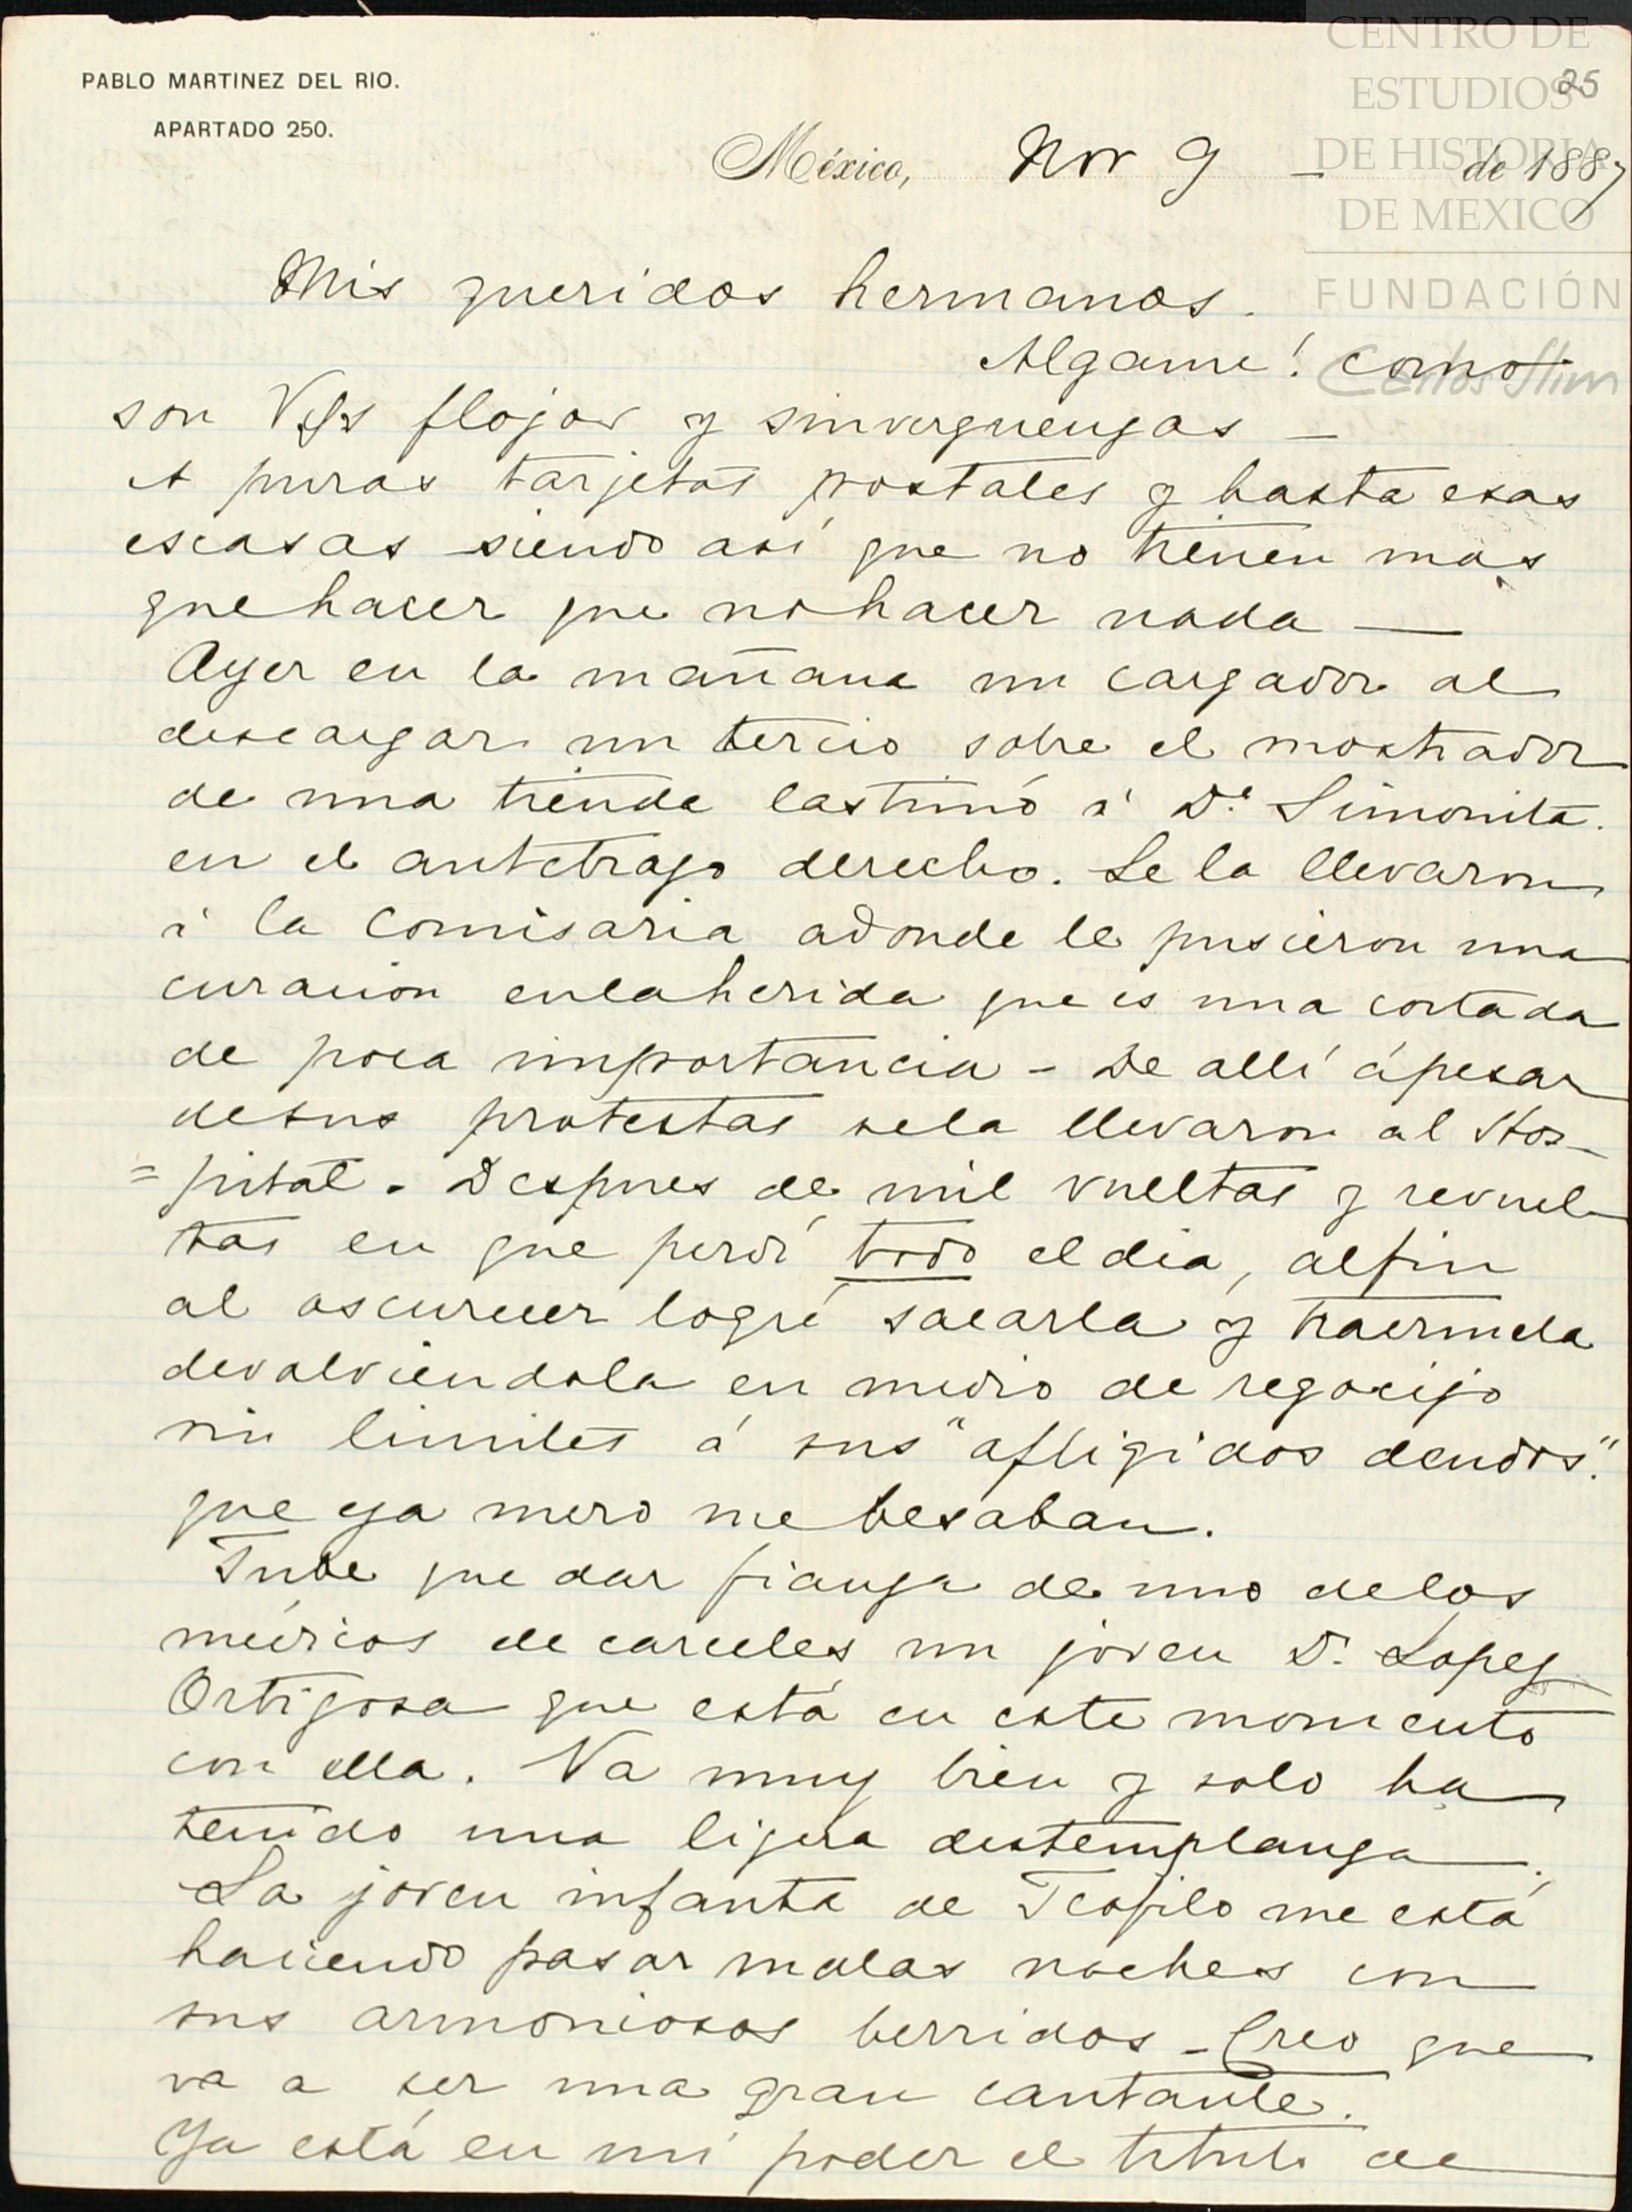 CENTRO DE
ESTUDIOS
DE HISTORIA
DE MEXICO
FUNDACIÓN
Carlos Slim
25
PABLO MARTINEZ DEL RIO.
APARTADO 250.
México, Nov 9 - de 1887
Mis queridos hermanos.
Algame! como
son Vds flojos y sinverguenzas —
A puras tarjetas postales y hasta esas
escasas siendo asi que no tienen mas
que hacer que no hacer nada —
Ayer en la mañana un cargador al
descargar un tercio sobre el mostrador
de una tienda lastimó á Da. Simonita.
en el antetrago derecho. Se la llevaron
á la Comisaria adonde le pusieron una
curacion en la herida que es una cortada
de poca importancia - De allí ápesar
de sus protestas se la llevaron al Hos-
=pital. Despues de mil vueltas y revuel-
tas en que perdí todo el dia, al fin
al oscurecer logré sacarla y traermela
devolviendola en medio de regocijo
sin limites á sus "afligidos deudos."
que ya mero me besaban.
Tube que dar fianza de uno de los
médicos de carceles un joven D. Lopez
Ortigosa que está en este momento
con ella. Va muy bien y solo ha
tenido una ligera destemplanza.
La joven infanta de Teofilo me está
haciendo pasar malas noches con
sus armoniosos berridos - Creo que
va a ser una gran cantante.
Ya está en mi poder el titulo de